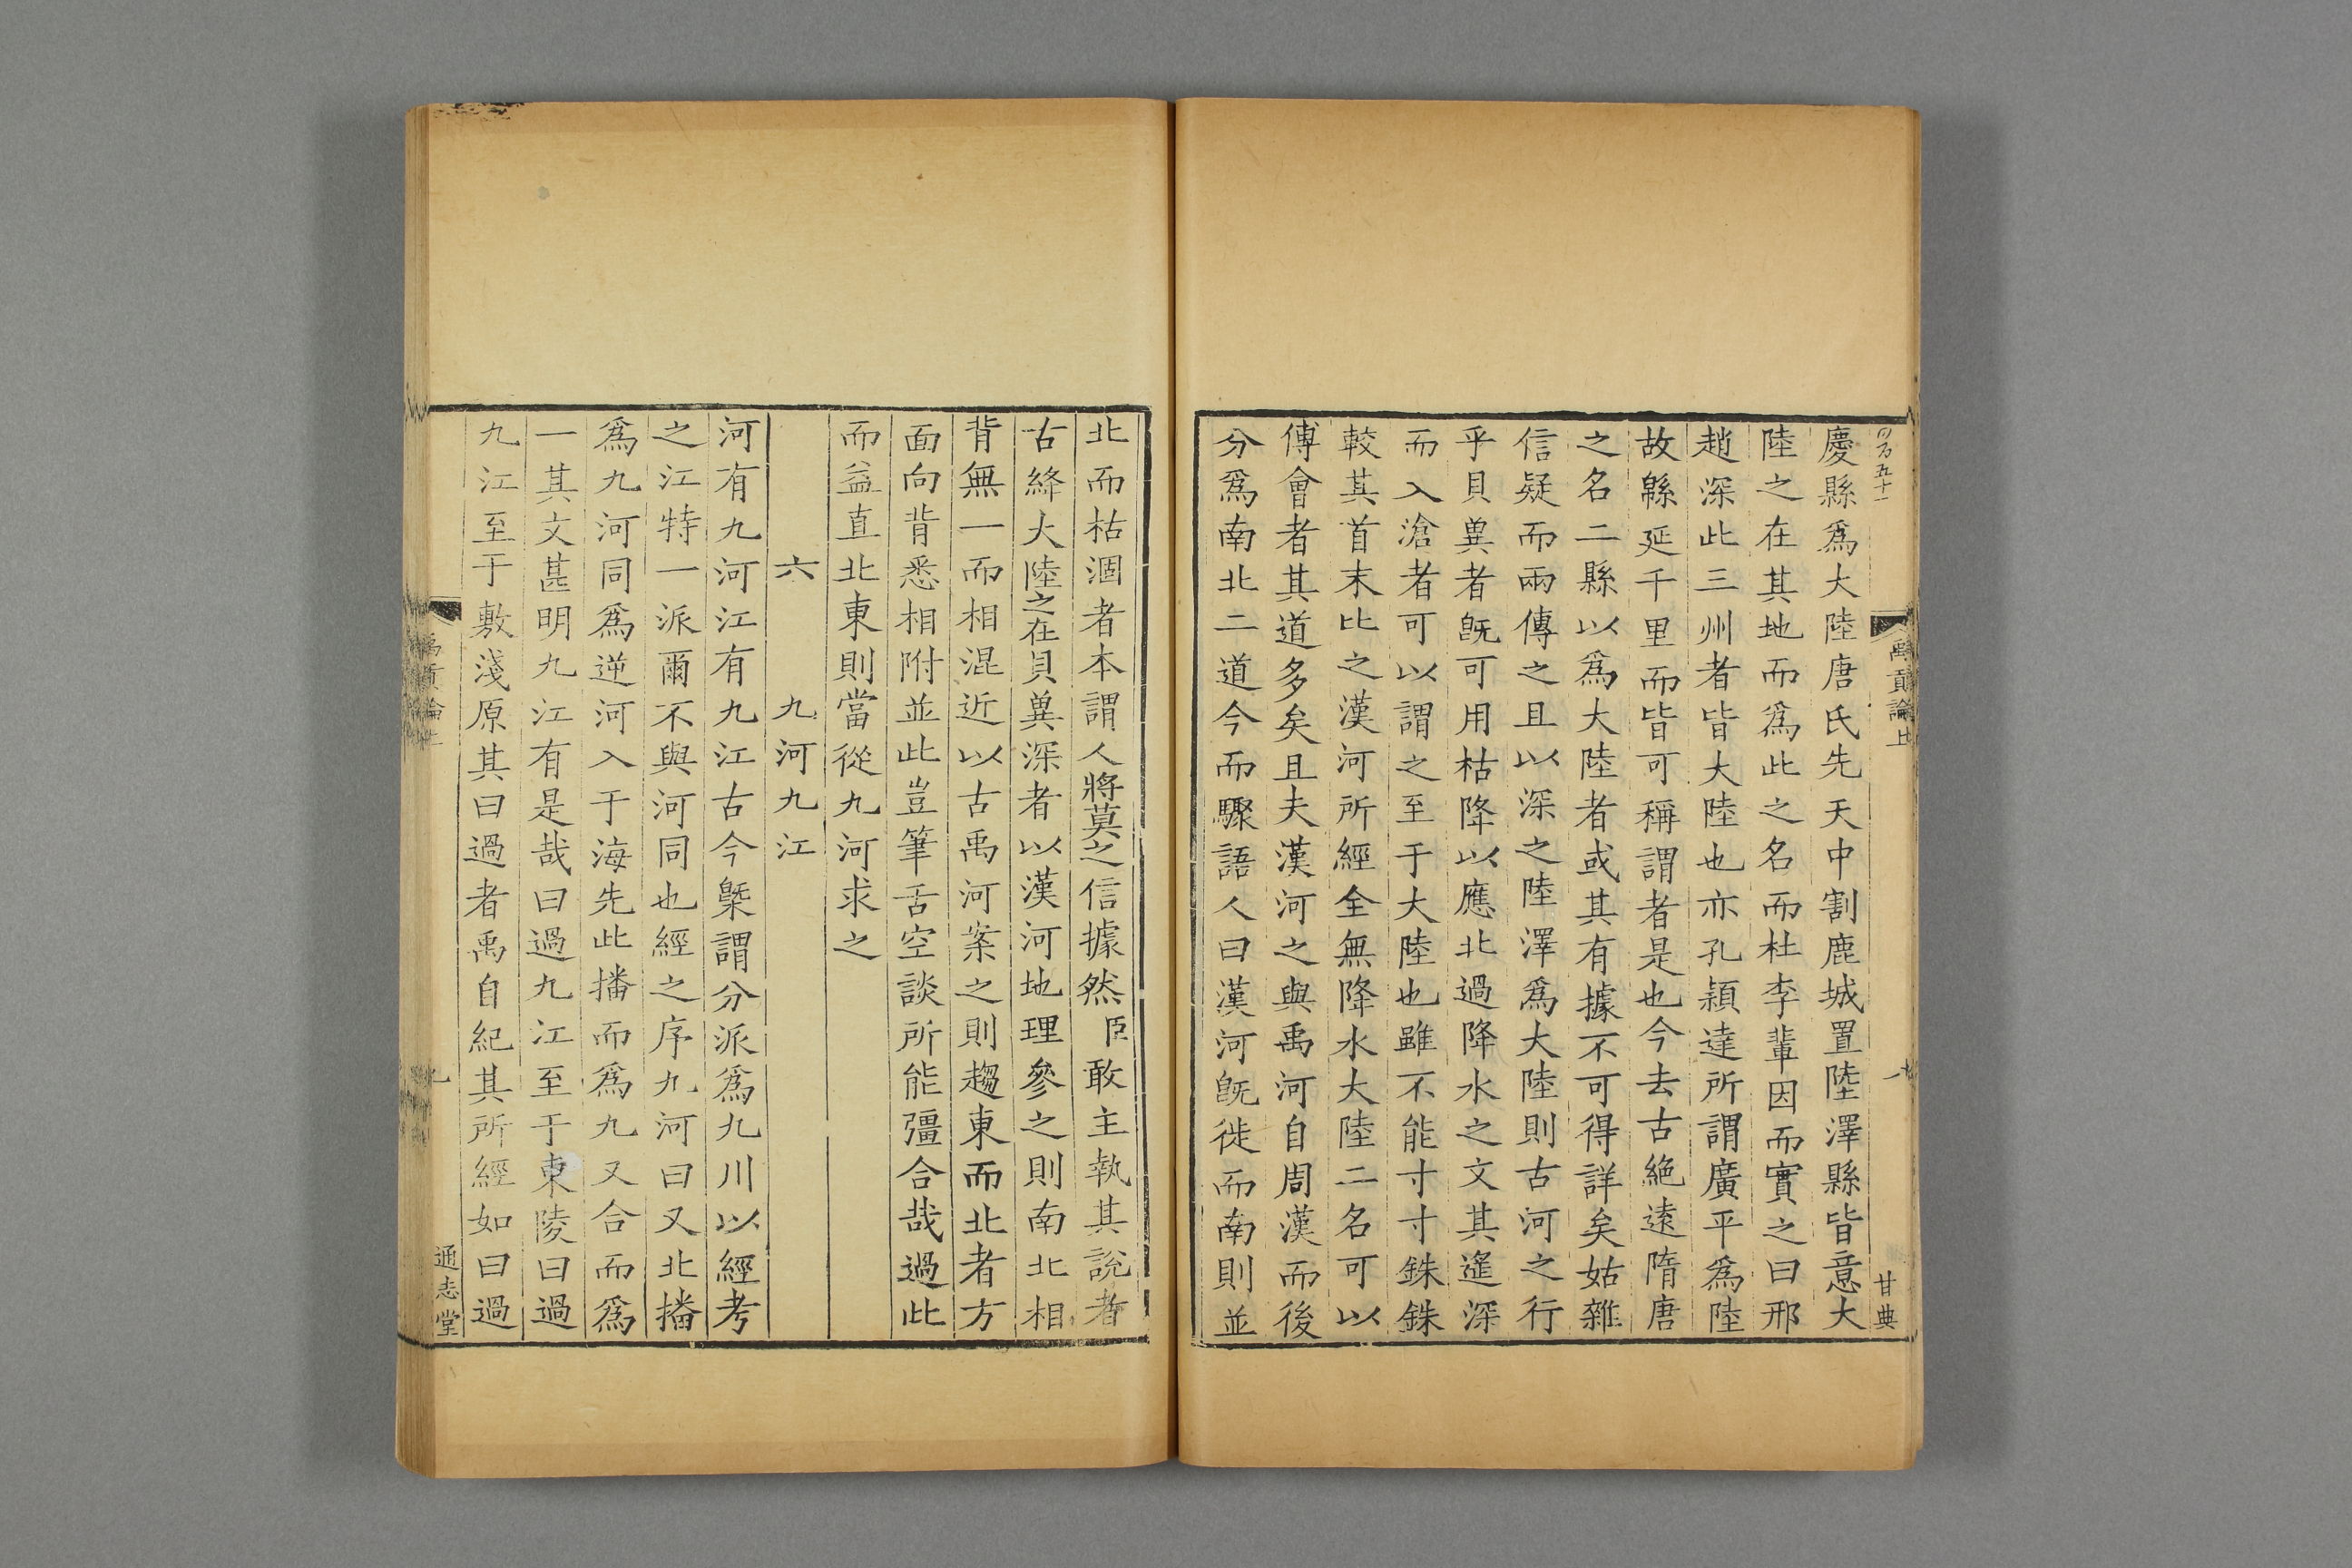 禹貢論上
甘典
慶縣爲大陸唐氏先天中割鹿城置陸澤縣皆意大
陸之在其地而爲此之名而杜李輩因而實之曰邢
趙深此三州者皆大陸也亦孔穎達所謂廣平爲陸
故緜延千里而皆可稱謂者是也今去古絶逺隋唐
之名二縣以爲大陸者或其有據不可得詳矣姑雜
信疑而兩傳之且以深之陸澤爲大陸則古河之行
乎貝兾者旣可用枯降以應北過降水之文其遙深
而入滄者可以謂之至于大陸也雖不能寸寸銖銖
較其首末比之漢河所經全無降水大陸二名可以
傅會者其道多矣且夫漢河之與禹河自周漢而後
分爲南北二道今而驟語人曰漢河旣徙而南則並
北而枯涸者本謂人將莫之信據然臣敢主執其說者
古絳大陸之在貝兾深者以漢河地理參之則南北相
背無一而相混近以古禹河案之則趨東而北者方
面向背悉相附並此豈筆舌空談所能彊合哉過此
而益直北東則當從九河求之
六 九河九江
河有九河江有九江古今槩謂分派爲九川以經考
之江特一派爾不與河同也經之序九河曰又北播
爲九河同爲逆河入于海先此播而爲九又合而爲
一其文甚明九江有是哉曰過九江至于東陵曰過
九江至于敷淺原其曰過者禹自紀其所經如曰過
通志堂